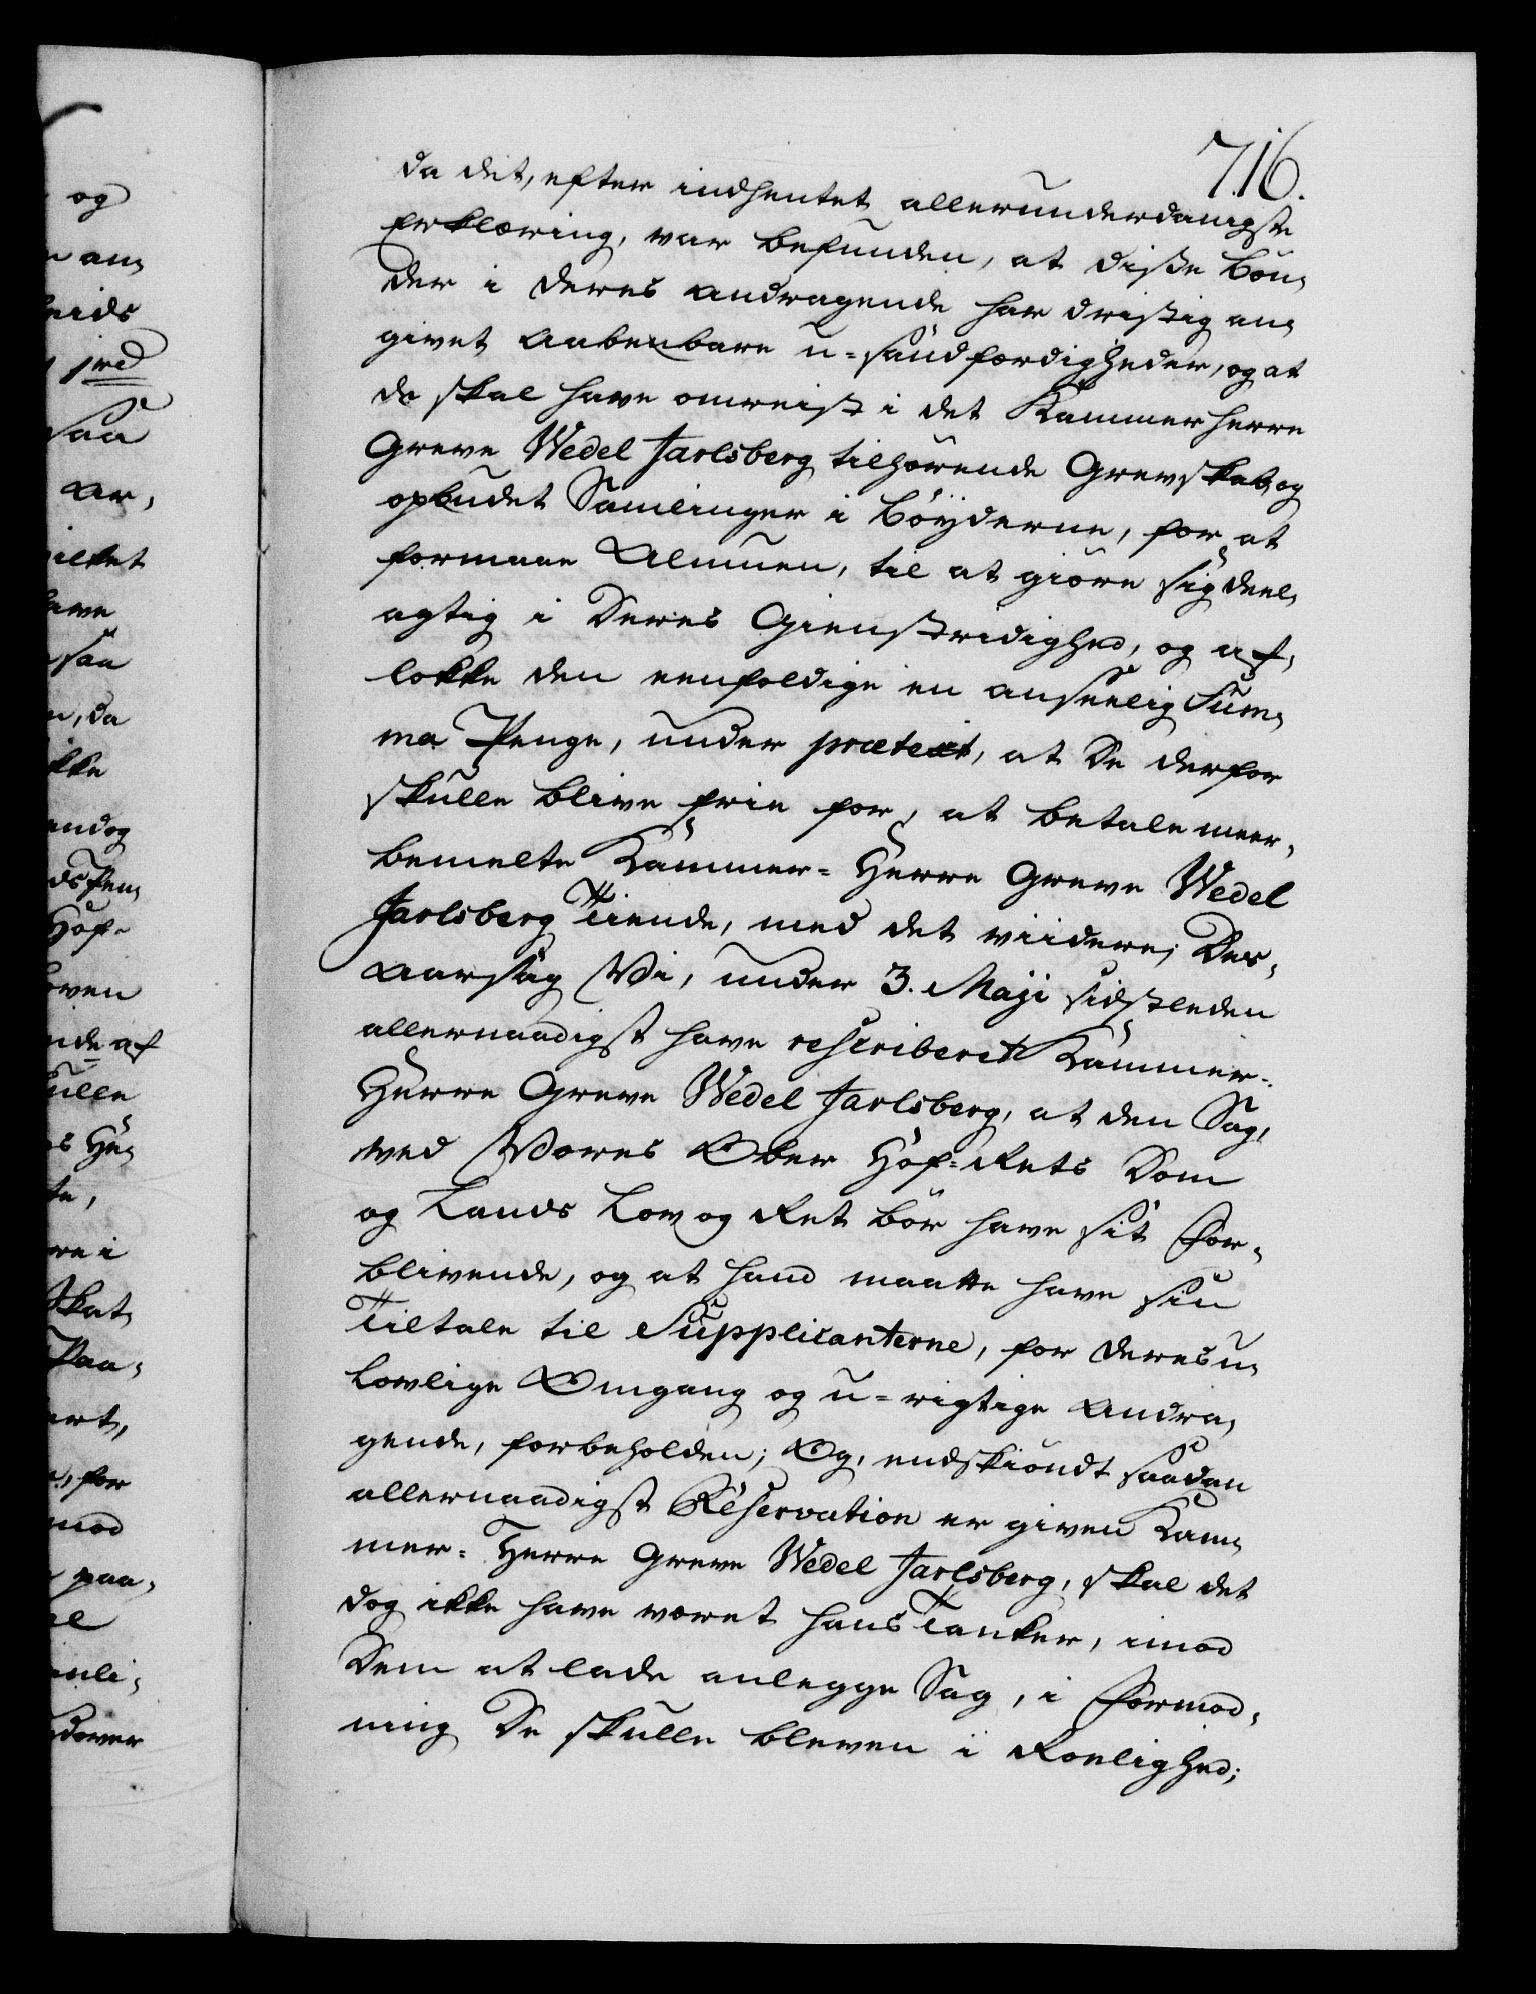 716.
da det, efter indhentet allerunderdanigste
Erklæring, var befunden, at diße Bön,
der i deres andragende har dristig an,
givet Aabenbare u-sandfærdigheder, og at
de skal have omreist i det Kammerherre
Greve Wedel Jarlsberg tilhørende Grevskab, og
opbudet Samlinger i Böyderne, for at
formaae Almuen, til at giöre sig deel,
agtig i Deres Gienstridighed, og af,
lokke den eenfoldige en anseelig Sum,
ma Penge, under prætext, at De derfor
skulle blive frie for, at betale meer,
bemelte Kammer-Herre Greve Wedel
Jarlsberg Tiende, med det viidere; Der,
Aarsag Vi, under 3. Maji sidstleden
allernaadigst have rescriberet Kammer-
Herre Greve Wedel Jarlsberg, at den Sag,
ved Vores Ober Hof-Rets Dom
og Lands Lov og Ret bör have sit For,
blivende, og at hand maatte have sin
Tiltale til Supplicanterne, for deres u,
lovlige Omgang og u-rigtige Andra,
gende, forbeholden; Og, endskiöndt saadan
allernaadigst Reservation er given Kam,
mer-Herre Greve Wedel Jarlsberg, skal det
dog ikke have været hans Tanker, imod
Dem at lade anlegge Sag, i Formod,
ning De skulle bleven i Roelighed;
og
an,
saa
Ar,
ilket
have
saa
, da
ikke
endog
Hof-
af
skulle
i
Skat,
Paa,
, for
imod
paa,